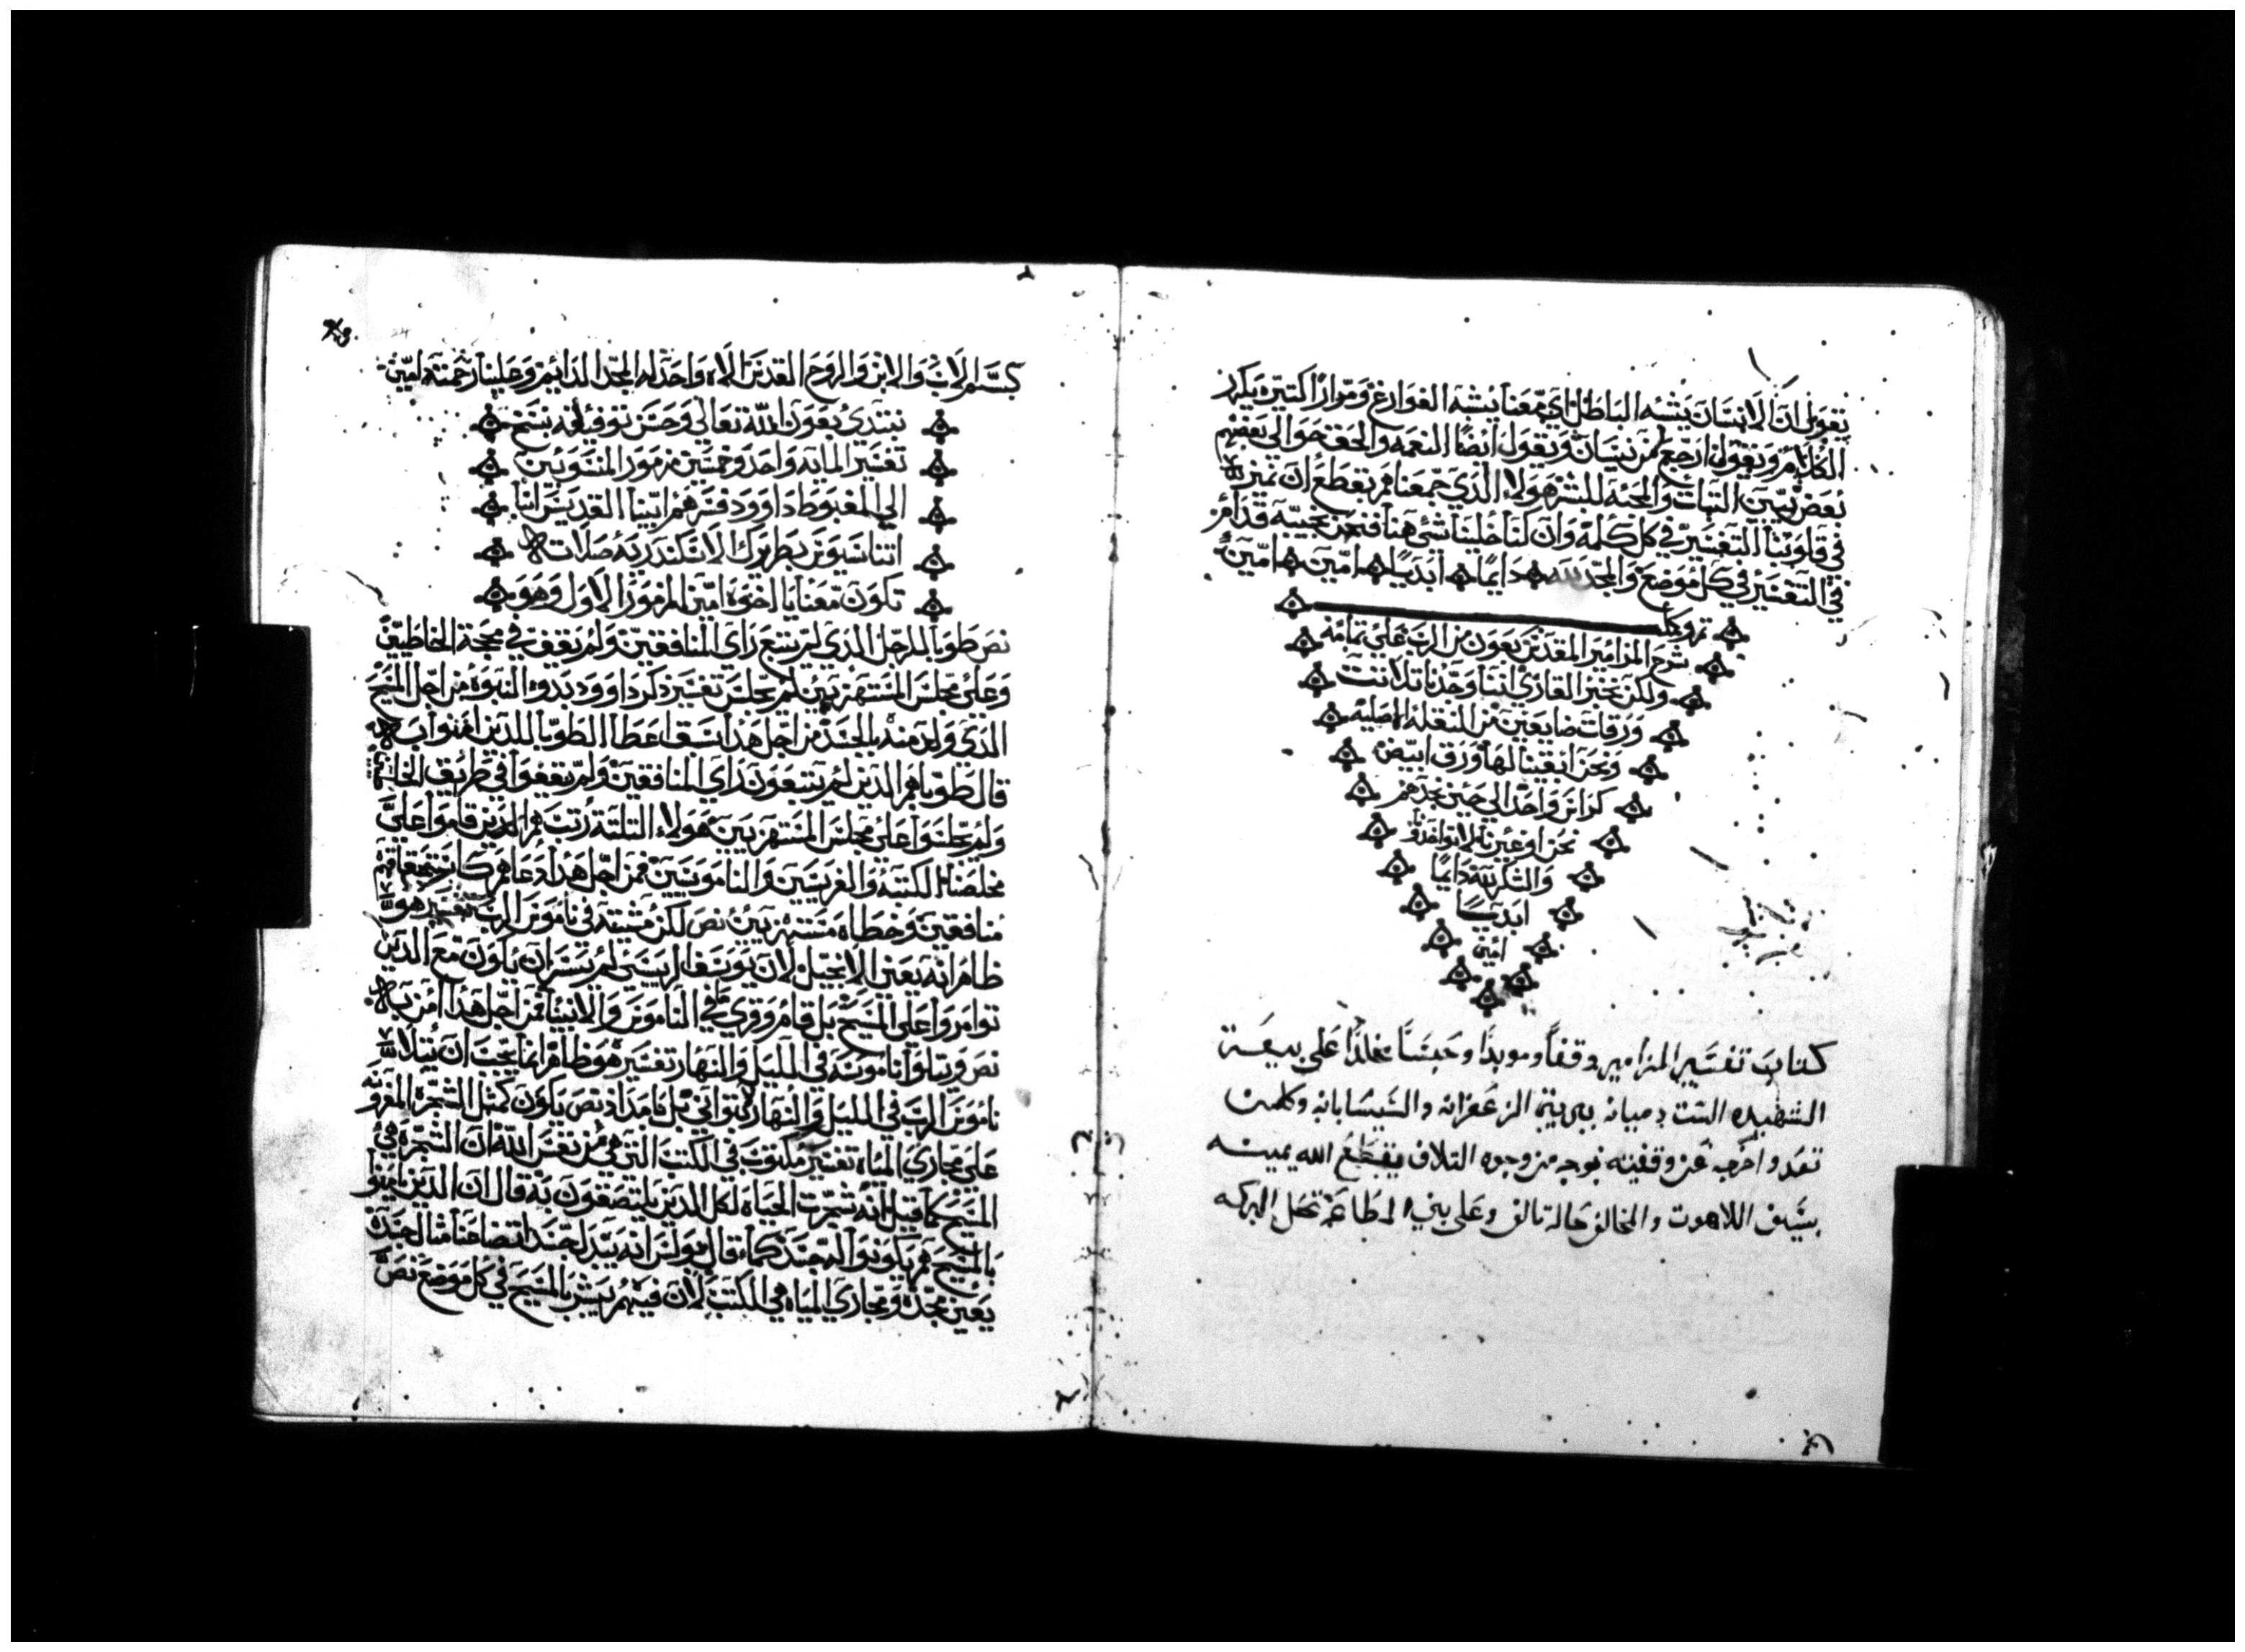 يقول ان الانسان يشبه الباطل اي معنا يشبه الفوارغ ومرارًا كتيره يكرر
الكلام ويقول ارجع لمن نيسان ويقول ايضًا النعمه والحق حوالي بعضهم
بعض بيين التبات والمحبه للبشر هولاء الذي جمعناهم بقطع ان نميز
في قلوبنا التفسير في كل كلمة وان كنا خلينا شئ هنا فنحن نجيبه قدام
في التفسير في كل موضع والمجد لله دايمًا ابديًا امين امين
تم وكمل
شرح المزامير المقدس بعون من الرب علي تمامه
ولكن نخبر القاري اننا وجدنا تلاتت
ورقات ضايعين من النقله الاصليه
ونحن ابقينا لها ورق ابيض
كراس واحد الي حين نجدهم
نحن او غيرنا
والشكر لله دايمًا
ابديًا
امين
كتاب تفسير المزامير وقفًا وموبدًا وحبسًا مخلدًا علي بيعة
الشهيده الست دميانه ببرية الزعفرانه والشيشابانه وكلمن
تعد واخرجه عن وقفيته بوجه من وجوه التلاف يقطع الله يمينه
بسيف اللاهوت والمخالف حاله تالف وعلي بني الطاعة تحل البركه
بسم الاب والابن والروح القدس الاه واحد له المجد الدايم وعلينا رحمته امين
نبتدئ بعون الله تعالي وحسن توفيقه بنسخ
تفسير المايه واحد وخمسين مزمور المنسوبين
الي المغبوط داوود فسرهم ابينا القديس انبا
اتناسيوس بطريرك الاسكندريه صلاته
تكون معنا يا اخوه امين المزمور الاول وهو
نص طوبا للرجل الذي لم يتبع راي المنافقين ولم يقف في محجة الخاطيين
وعلي مجلس المستهزيين لم يجلس تفسير ذكر داوود بدو النبوه من اجل المسيح
الذي ولد منه بالجسد من اجل هذا اعطا الطوبا للذين امنوا به
قال طوباهم الذين لم يتبعون راي المنافقين ولم يقفوا في طريق الخاطيين
ولم يجلسوا علي مجلس المستهزيين هولاء التلتة رتب هم الذين قاموا علي
مخلصنا الكتبه والفريسين والناموسيين فمن اجل هذا دعاهم
منافقين وخطاه مستهزيين نص لكن مشيته في ناموس الرب تفسير هو
ظاهر انه يعني الانجيل لان يوسف لم يسر ان يكون مع الذين
توامروا علي المسيح بل قام وقري في الناموس والانبيا فمن اجل هذا امن به
نص ويتلوا ناموسه في الليل والنهار تفسير هو ظاهر انما يجب ان يتلا
ناموس الرب في الليل والنهار نص يكون كمتل الشجرة المغروسه
علي مجاري المياه تفسير مكتوب في الكتب التي هي من نفس الله ان الشجره هي
المسيح كما قيل انه شجرت الحياه لكل الذين يلتصقون به قال ان الذين يامنوا
بالمسيح هم يكونوا له جسد كما قال بولس انه يبدل جسد اتضاعنا متال جسد
يعني مجده ومجاري المياه هي الكتب لان فيهم يبشر بالمسيح في كل موضع نص